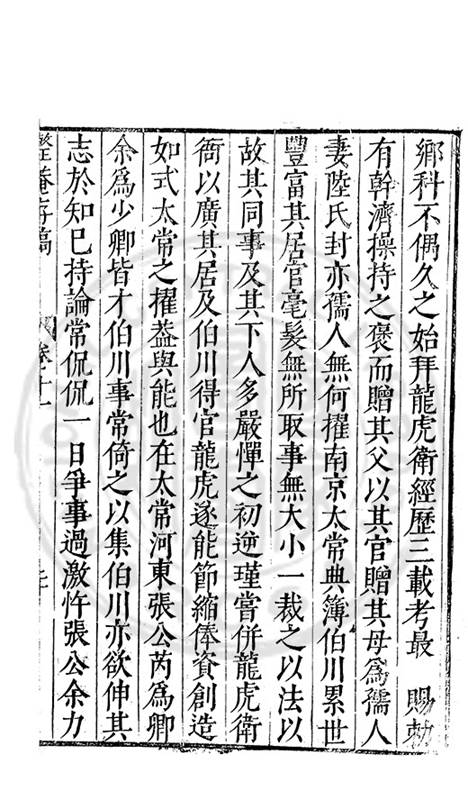 鄉科不偶久之始拜龍虎衛經歷三載考最　賜勅
有幹濟操持之褒而贈其父以其官贈其母為孺人
妻陸氏封亦孺人無何擢南京太常典簿伯川累世
豐富其居官毫髮無所取事無大小一裁之以法以
故其同事及其下人多嚴憚之初逆瑾嘗併龍虎衛
衙以廣其居及伯川得官龍虎遂能節縮俸資創造
如式太常之擢葢與能也在太常河東張公芮為卿
余為少卿皆才伯川事常倚之以集伯川亦欲伸其
志於知巳持論常侃侃一日爭事過激忤張公余力
整庵存稿　卷十一